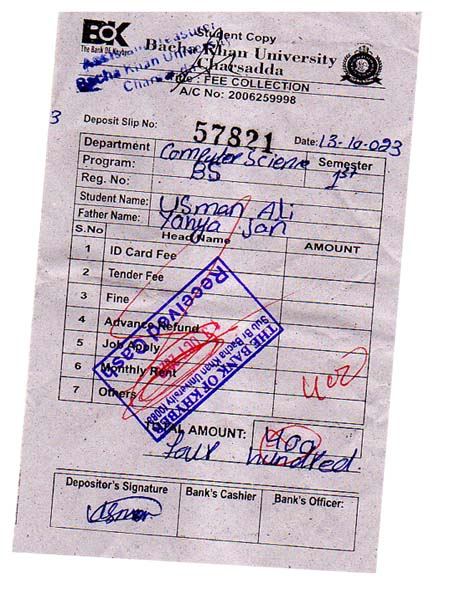 Student Copy
BOK
The Bank Of Khyber
Bacha Khan University
Charsadda
Assistant Treasurer
Bacha Khan University
Charsadda
Title: FEE COLLECTION
A/C No: 2006259998
3
Deposit Slip No: 57821 Date: 13-10-023
Department Computer Science Semester
Program: BS 1st
Reg. No:
Student Name: Usman Ali
Father Name: Yahya Jan
S.No Head Name AMOUNT
1 ID Card Fee
2 Tender Fee
3 Fine
4 Advance Refund
5 Job Apply
6 Monthly Rent
7 Others 400
Received Cash
THE BANK OF KHYBER
TOTAL AMOUNT: 400
Four hundred.
Depositor's Signature Bank's Cashier Bank's Officer:
Usman